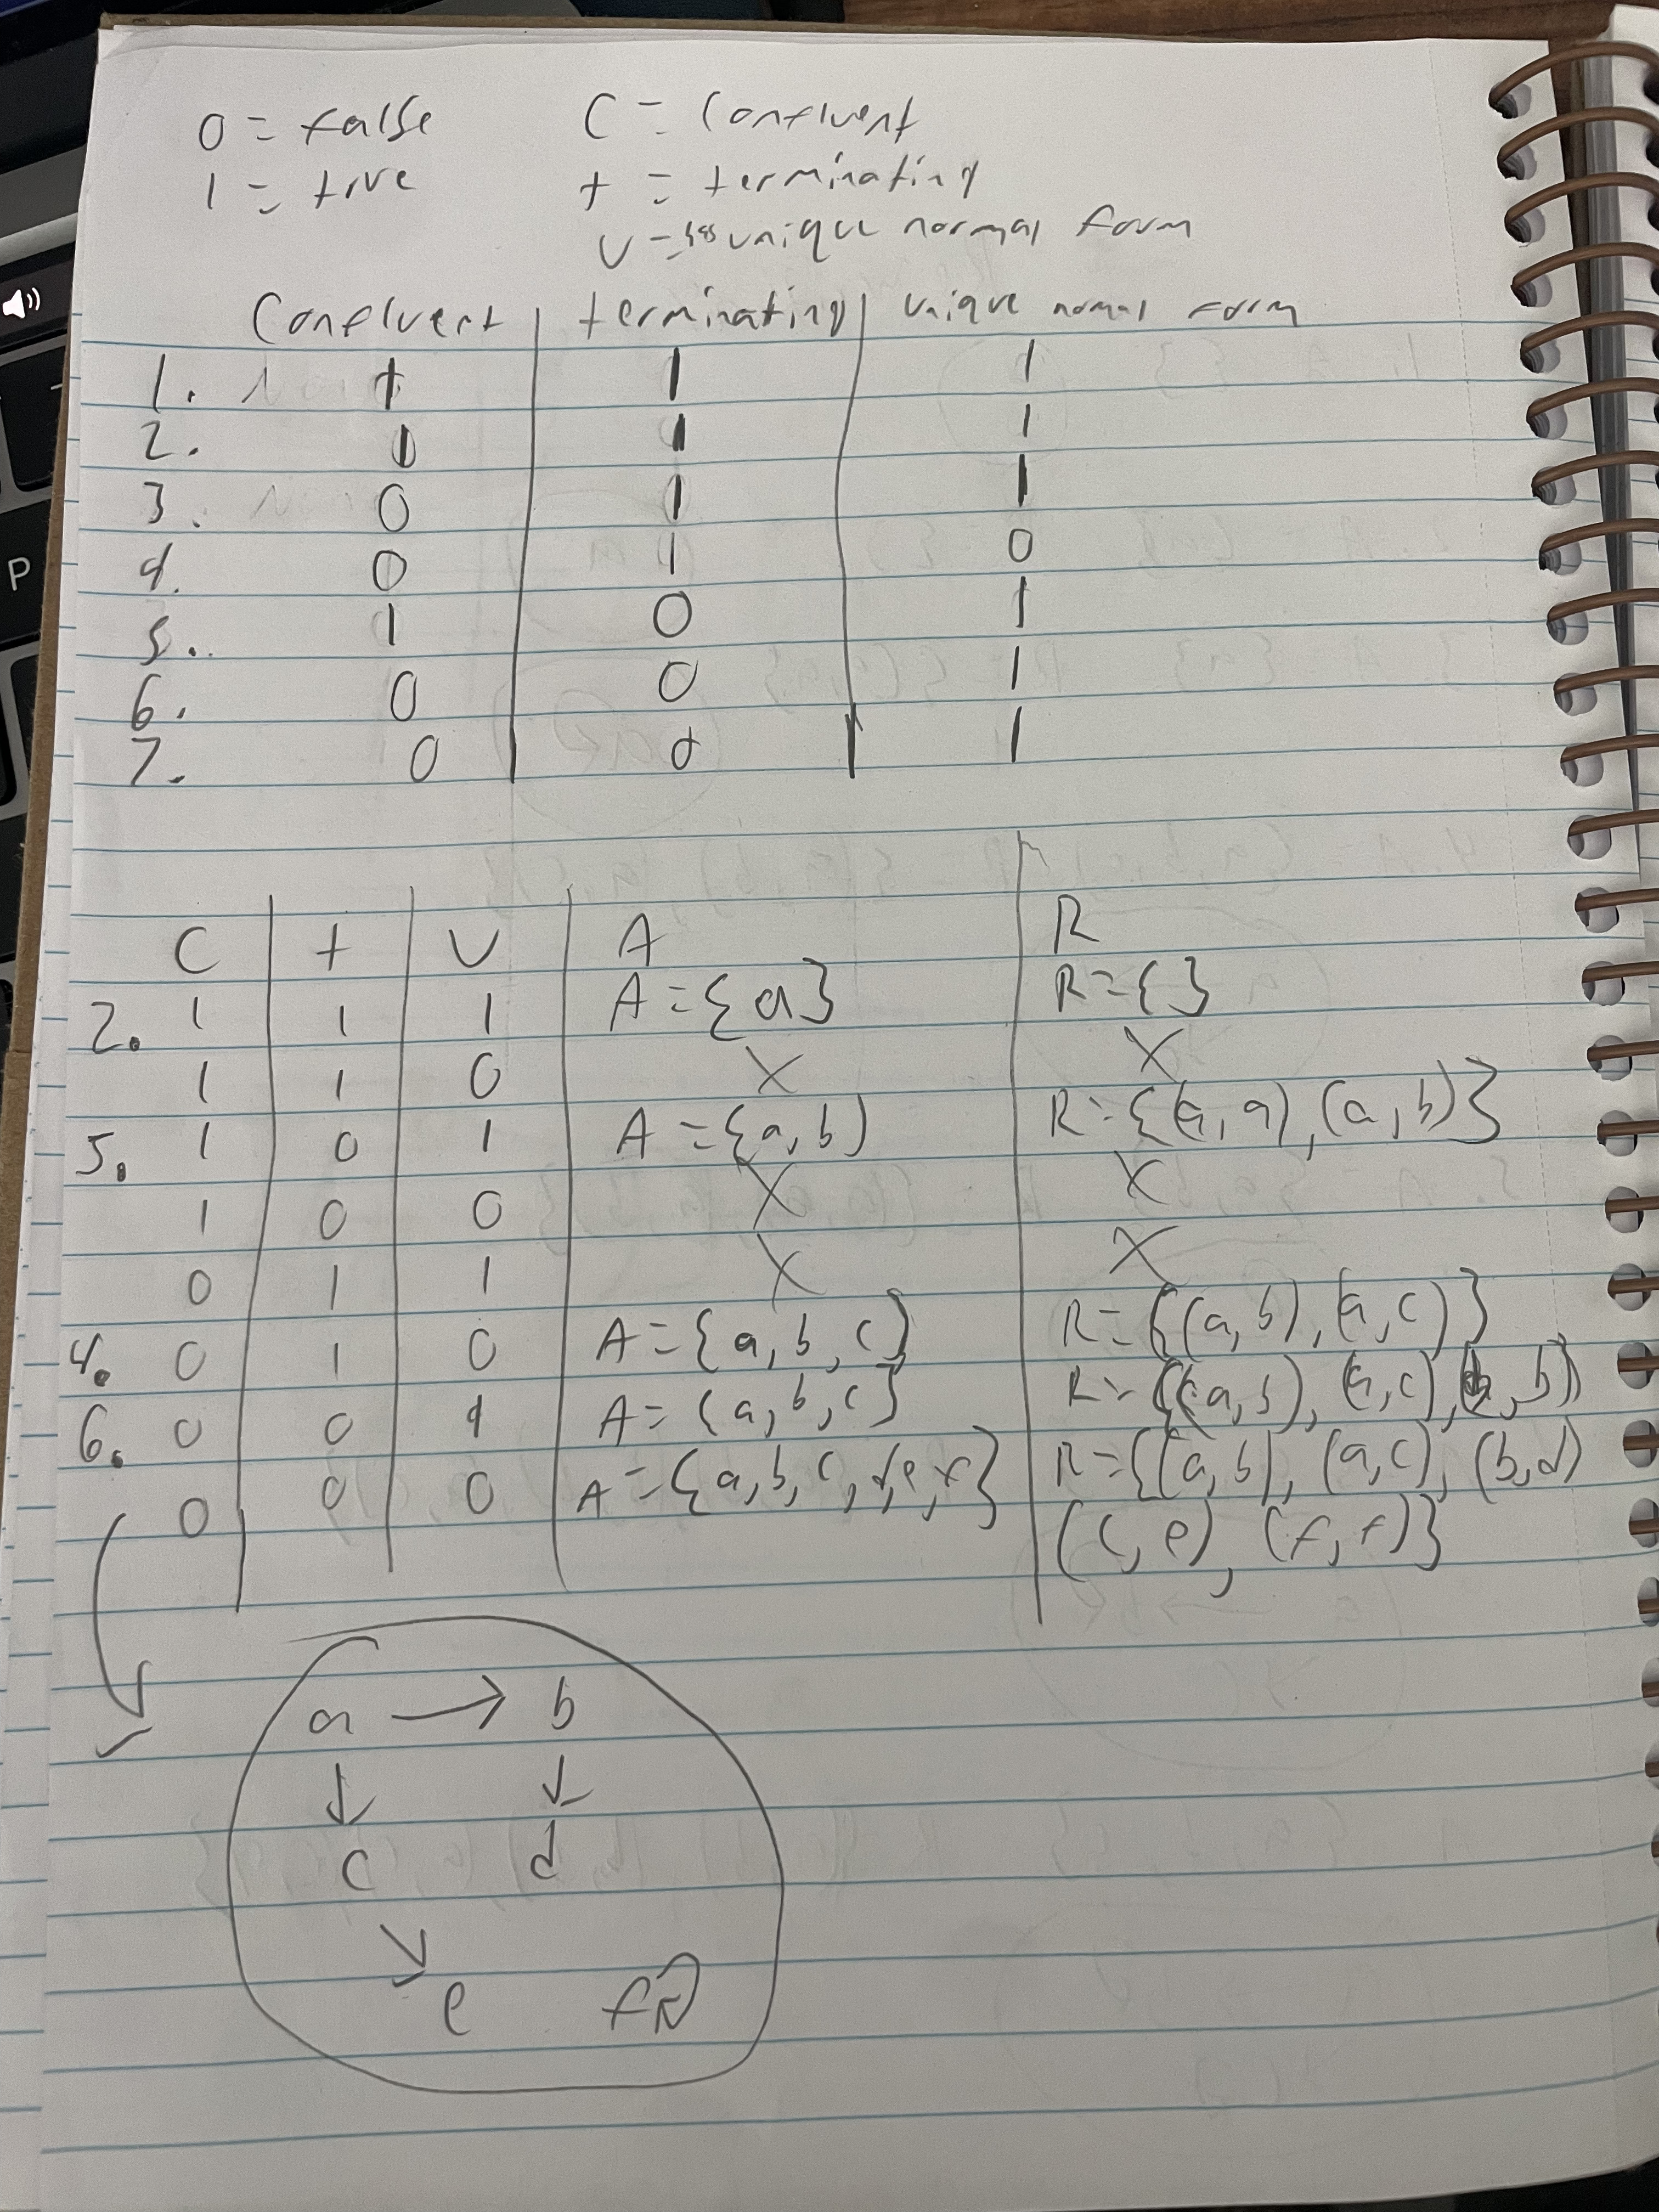 0 = false C = Confluent
1 = true t = terminating
U = unique normal form
Confluent | terminating | unique normal form
1. 1 1 1
2. 1 1 1
3. 0 1 1
4. 0 1 0
5. 1 0 1
6. 0 0 1
7. 0 0 1
C | t | U | A | R
2. 1 1 1 A = {a} R = {}
1 1 0 X X
5. 1 0 1 A = {a, b) R = {(a, a), (a, b)}
1 0 0 X X
0 1 1 X X
4. 0 1 0 A = {a, b, c} R = {(a, b), (a, c)}
6. 0 0 1 A = {a, b, c} R = {(a, b), (a, c), (b, b)}
0 0 0 A = {a, b, c, d, e, f} R = {(a, b), (a, c), (b, d)
(c, e), (f, f)}
a → b
↓ ↓
c d
↘
e f
P